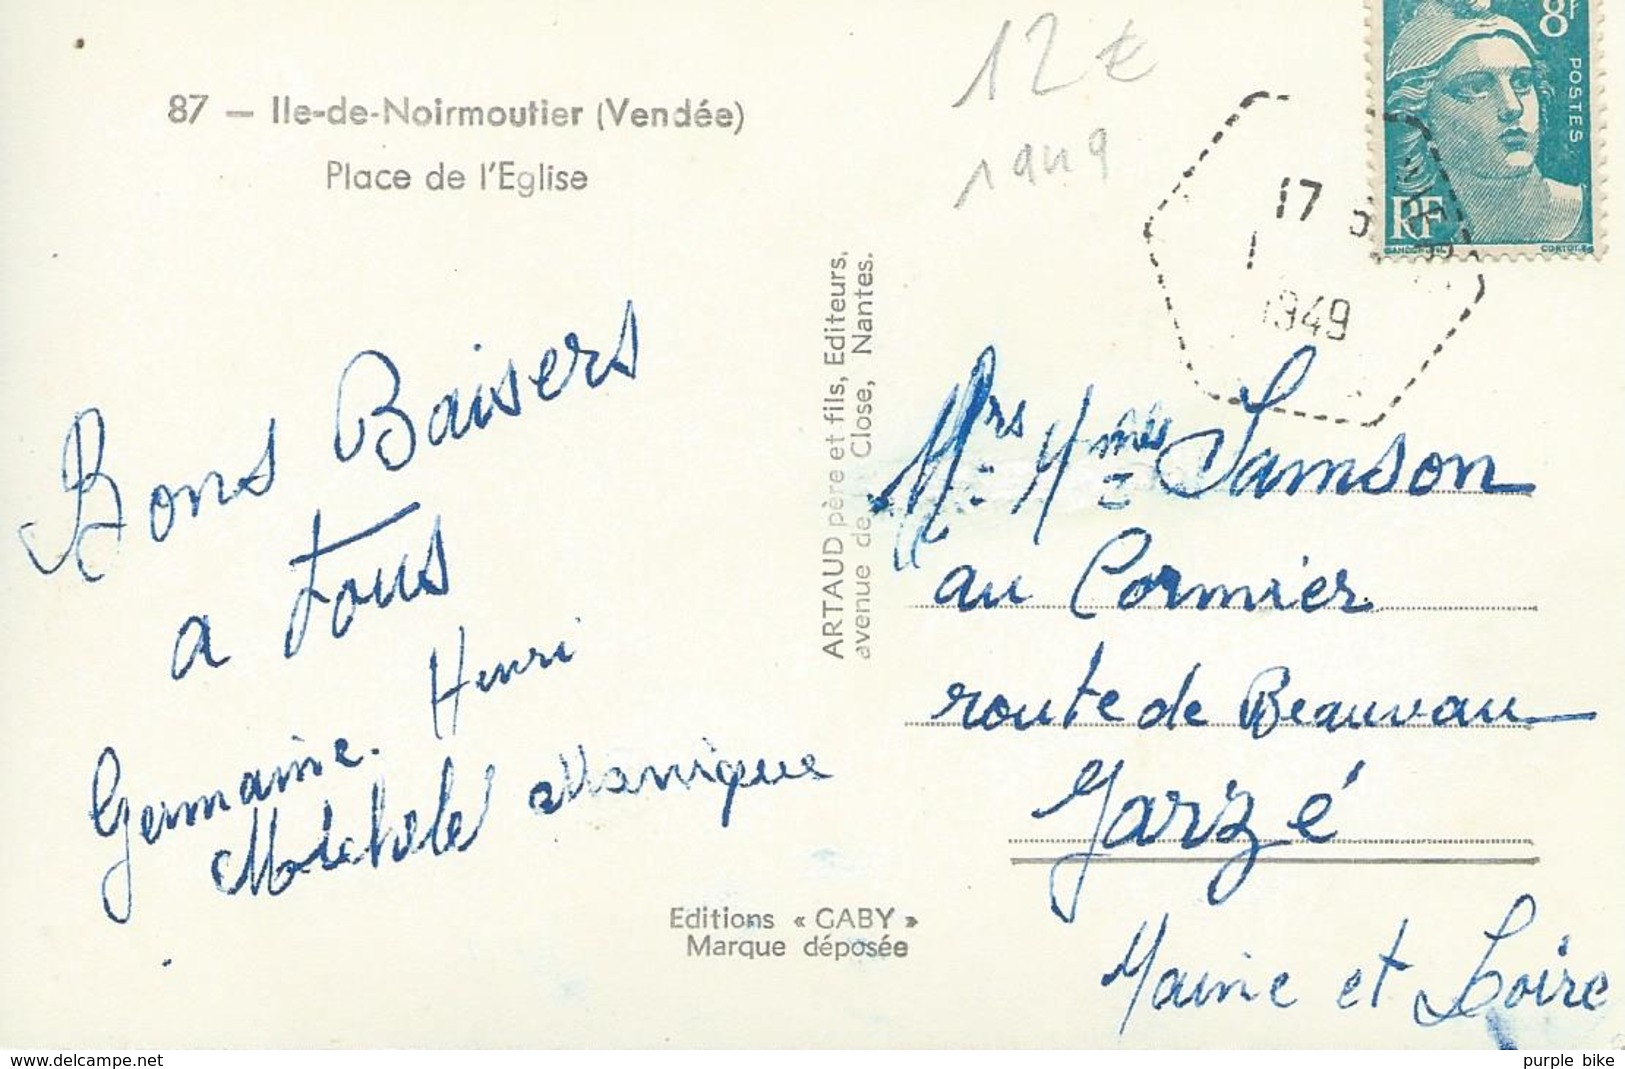 87 — Ile-de-Noirmoutier (Vendée)
Place de l'Eglise
12 €
1949
8F
POSTES
RF
17
1949
Bons Baisers
a tous
Henri
Germaine.
Michele Monique
ARTAUD père et fils, Editeurs,
avenue de Close, Nantes.
Editions « GABY »
Marque déposée
Mrs Mmes Samson
au Cormier
route de Beauvau
Jarzé
Maine et Loire
www.delcampe.net
purple bike